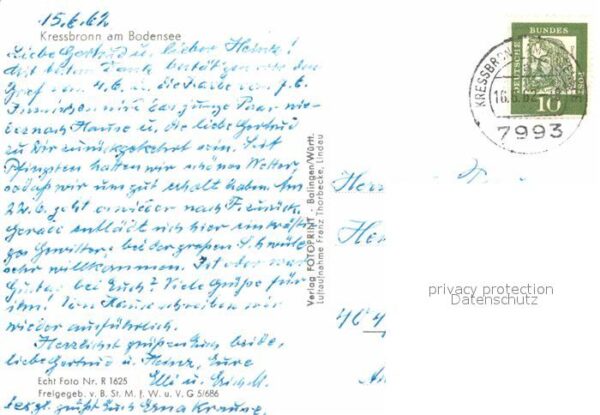 15.6.62
Kressbronn am Bodensee
Liebe Gertrud u. lieber Heinz!
Mit bestem Dank bestätigen wir den
Brief vom 4.6. u. die Karte vom 7.6.
Inzwischen wird das junge Paar wie-
der nach Hause u. die liebe Gertrud
zu Dir zurückgekehrt sein. Seit
Pfingsten hatten wir schönes Wetter
sodaß wir uns gut erholt haben. Am
22.6. geht es wieder nach F. zurück.
Gerade entlädt sich hier ein kräfti-
ges Gewitter, bei der großen Schwüle
sehr willkommen. Ist oder war
Gustav bei Euch? Viele Grüße für
ihn! Von Hause schreiben wir
wieder ausführlich.
Herzlichst grüßen Euch beide,
liebe Gertrud u. Heinz, Eure
Elli u. Erich M.
grüßt Euch Erna Krause
Echt Foto Nr. R 1625
Freigegeb. v. B. St. M. f. W. u. V. G 5/686
Verlag FOTOPRINT - Balingen/Württ.
Luftaufnahme Franz Thorbecke, Lindau
DEUTSCHE BUNDESPOST
10
KRESSBRONN
16.6.62
7993
privacy protection
Datenschutz